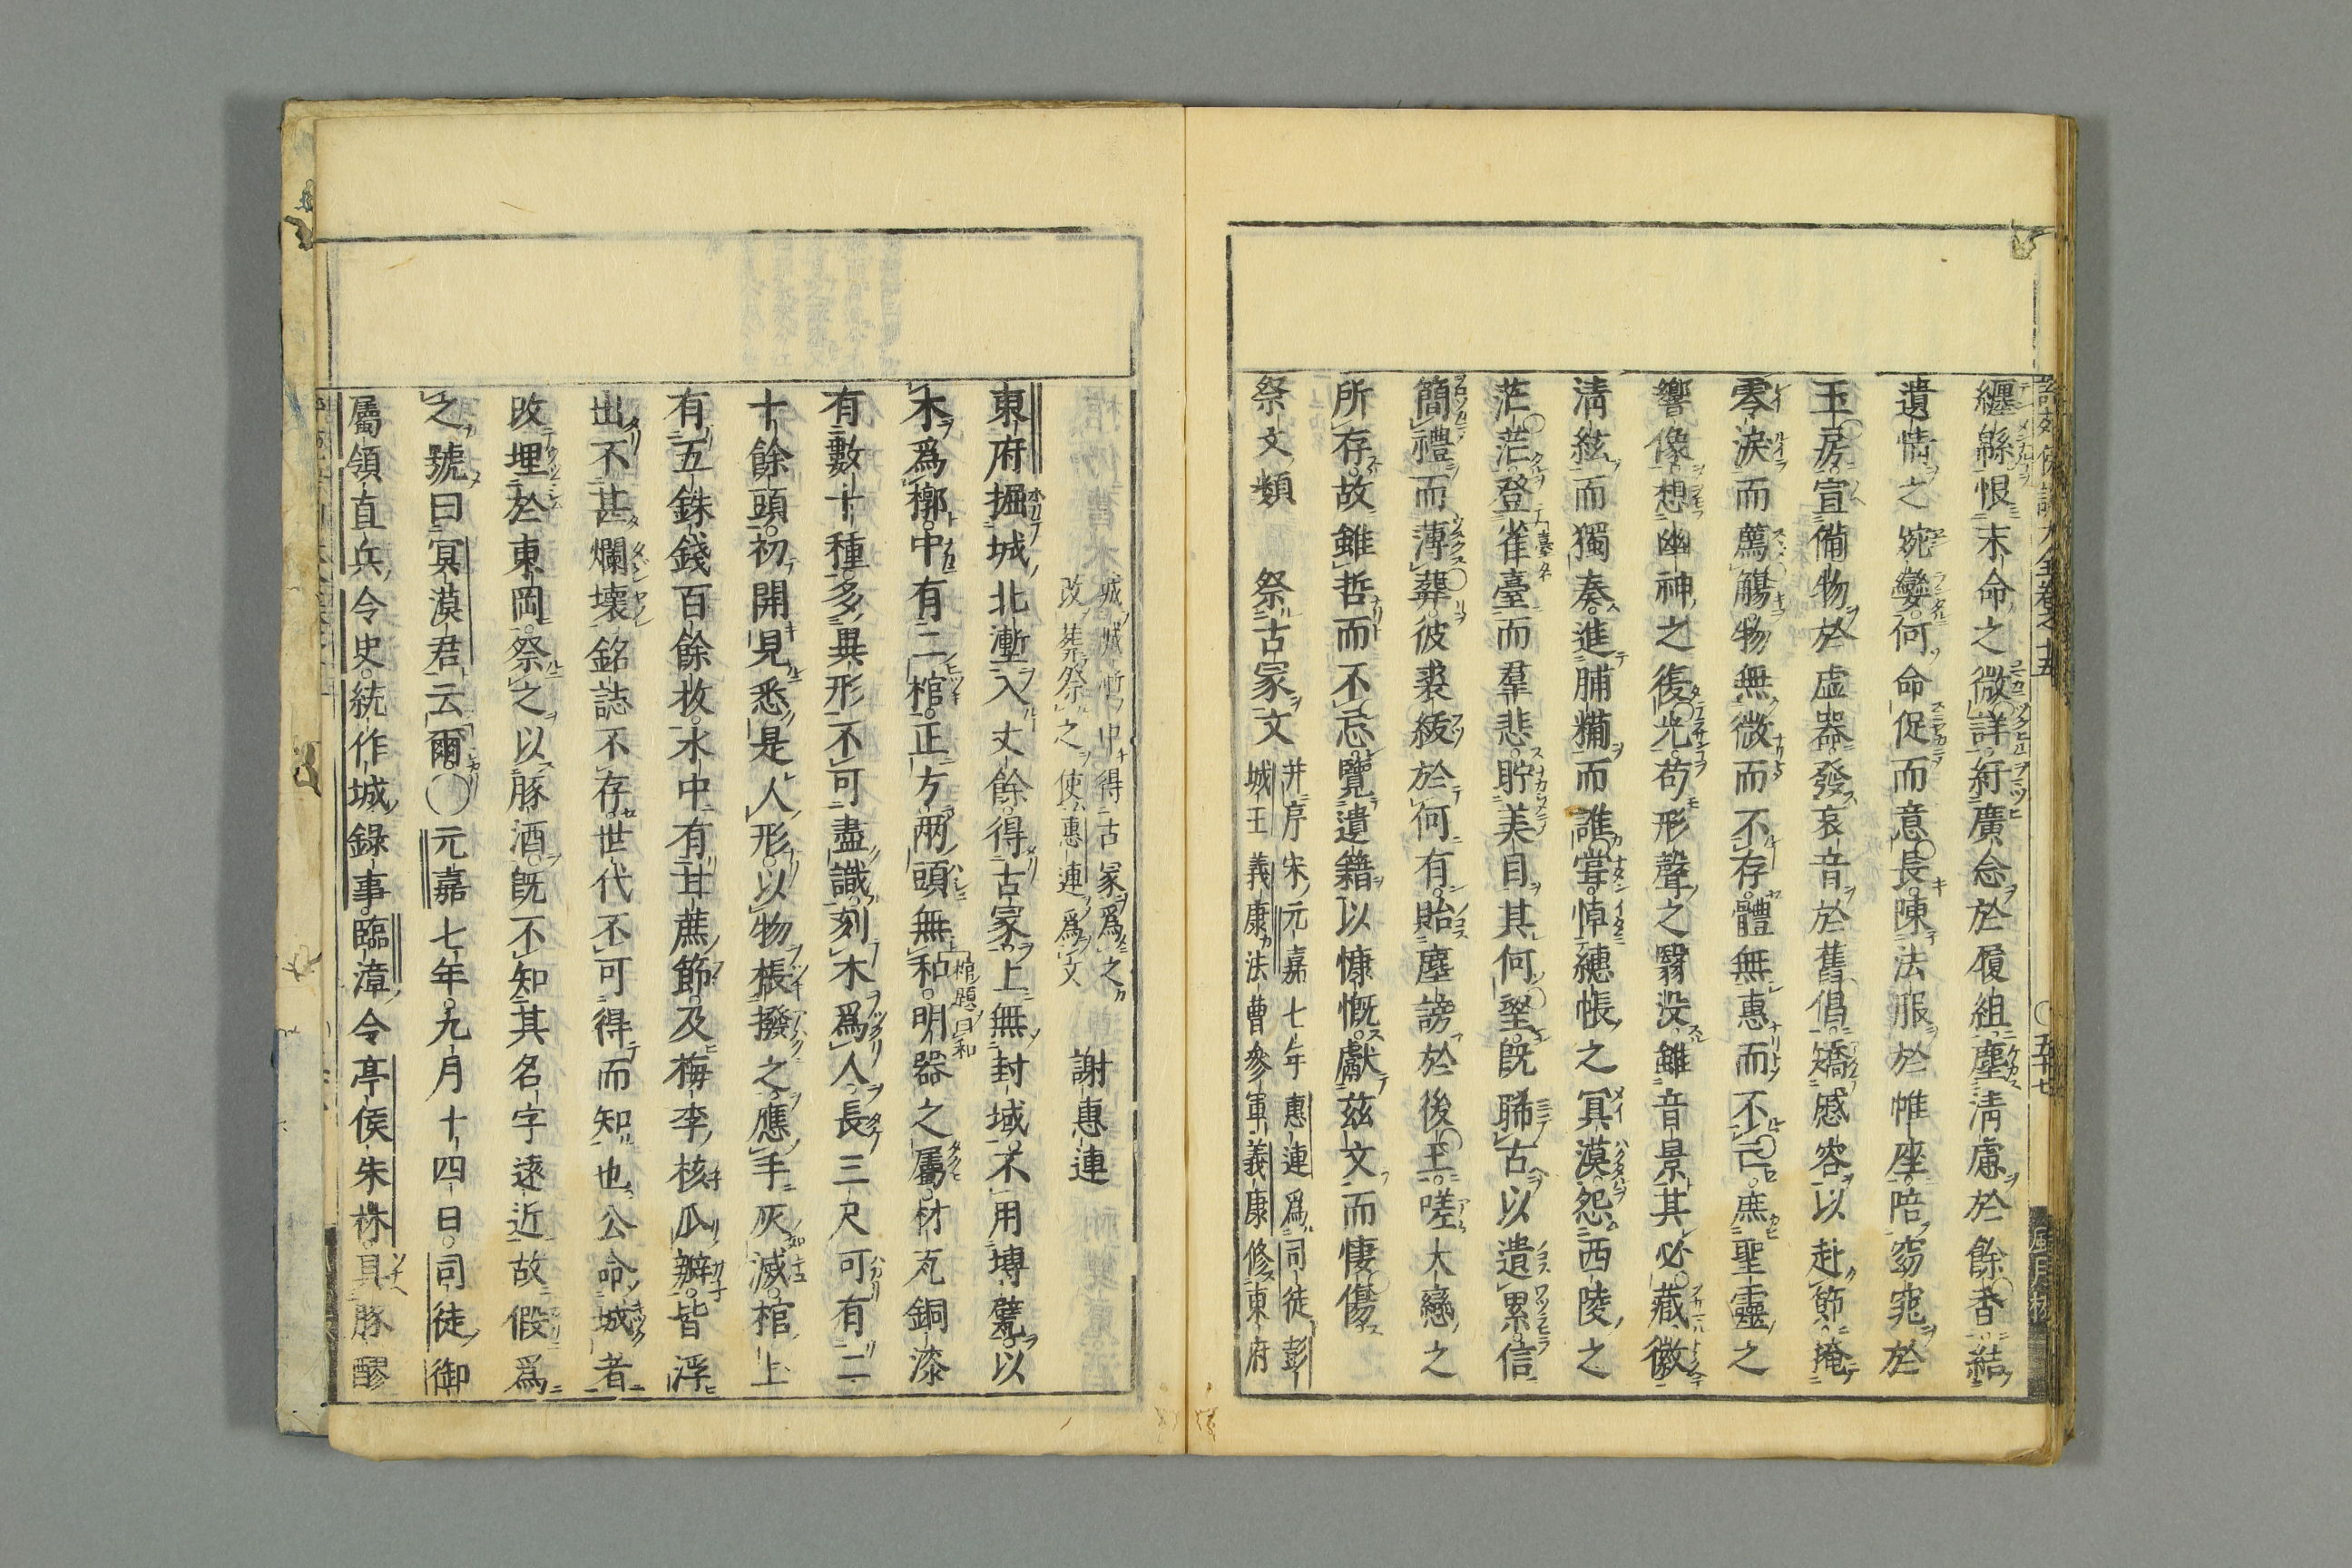 纏緜恨末命之微詳紆廣念於履組塵淸慮於餘香結
遺情之婉孌何命促而意長陳法服於帷座陪窈窕於
玉房宣備物於虚器發哀音於舊倡矯慼容以赴節掩
零淚而薦觴物無微而不存體無惠而不亡庶聖靈之
響像想幽神之復光苟形聲之翳没雖音景其必藏徽
淸絃而獨奏進脯糒而誰甞悼繐帳之冥漠怨西陵之
茫茫登雀臺而羣悲貯美目其何望旣睎古以遺累信
簡禮而薄葬彼裘紱於何有貽塵謗於後王嗟大戀之
所存故雖哲而不忘覽遺籍以慷慨獻茲文而悽傷
祭文類 祭古冢文
幷序宋元嘉七年惠連爲司徒彭
城王義康法曹參軍義康修東府
城城塹中得古冢爲之
改葬祭之使惠連爲文
謝惠連
東府掘城北塹入丈餘得古冢上無封域不用塼甓以
木爲槨中有二棺正方兩頭無和明器之屬材瓦銅漆
棺題曰和
有數十種多異形不可盡識刻木爲人長三尺可有二
十餘頭初開見悉是人形以物棖撥之應手灰滅棺上
有五銖錢百餘枚水中有甘蔗節及梅李核瓜瓣皆浮
出不甚爛壞銘誌不存世代不可得而知也公命城者
改埋於東岡祭之以豚酒旣不知其名字遠近故假爲
之號曰冥漠君云爾○元嘉七年九月十四日司徒御
屬領直兵令史統作城錄事臨漳令亭侯朱林具豚醪